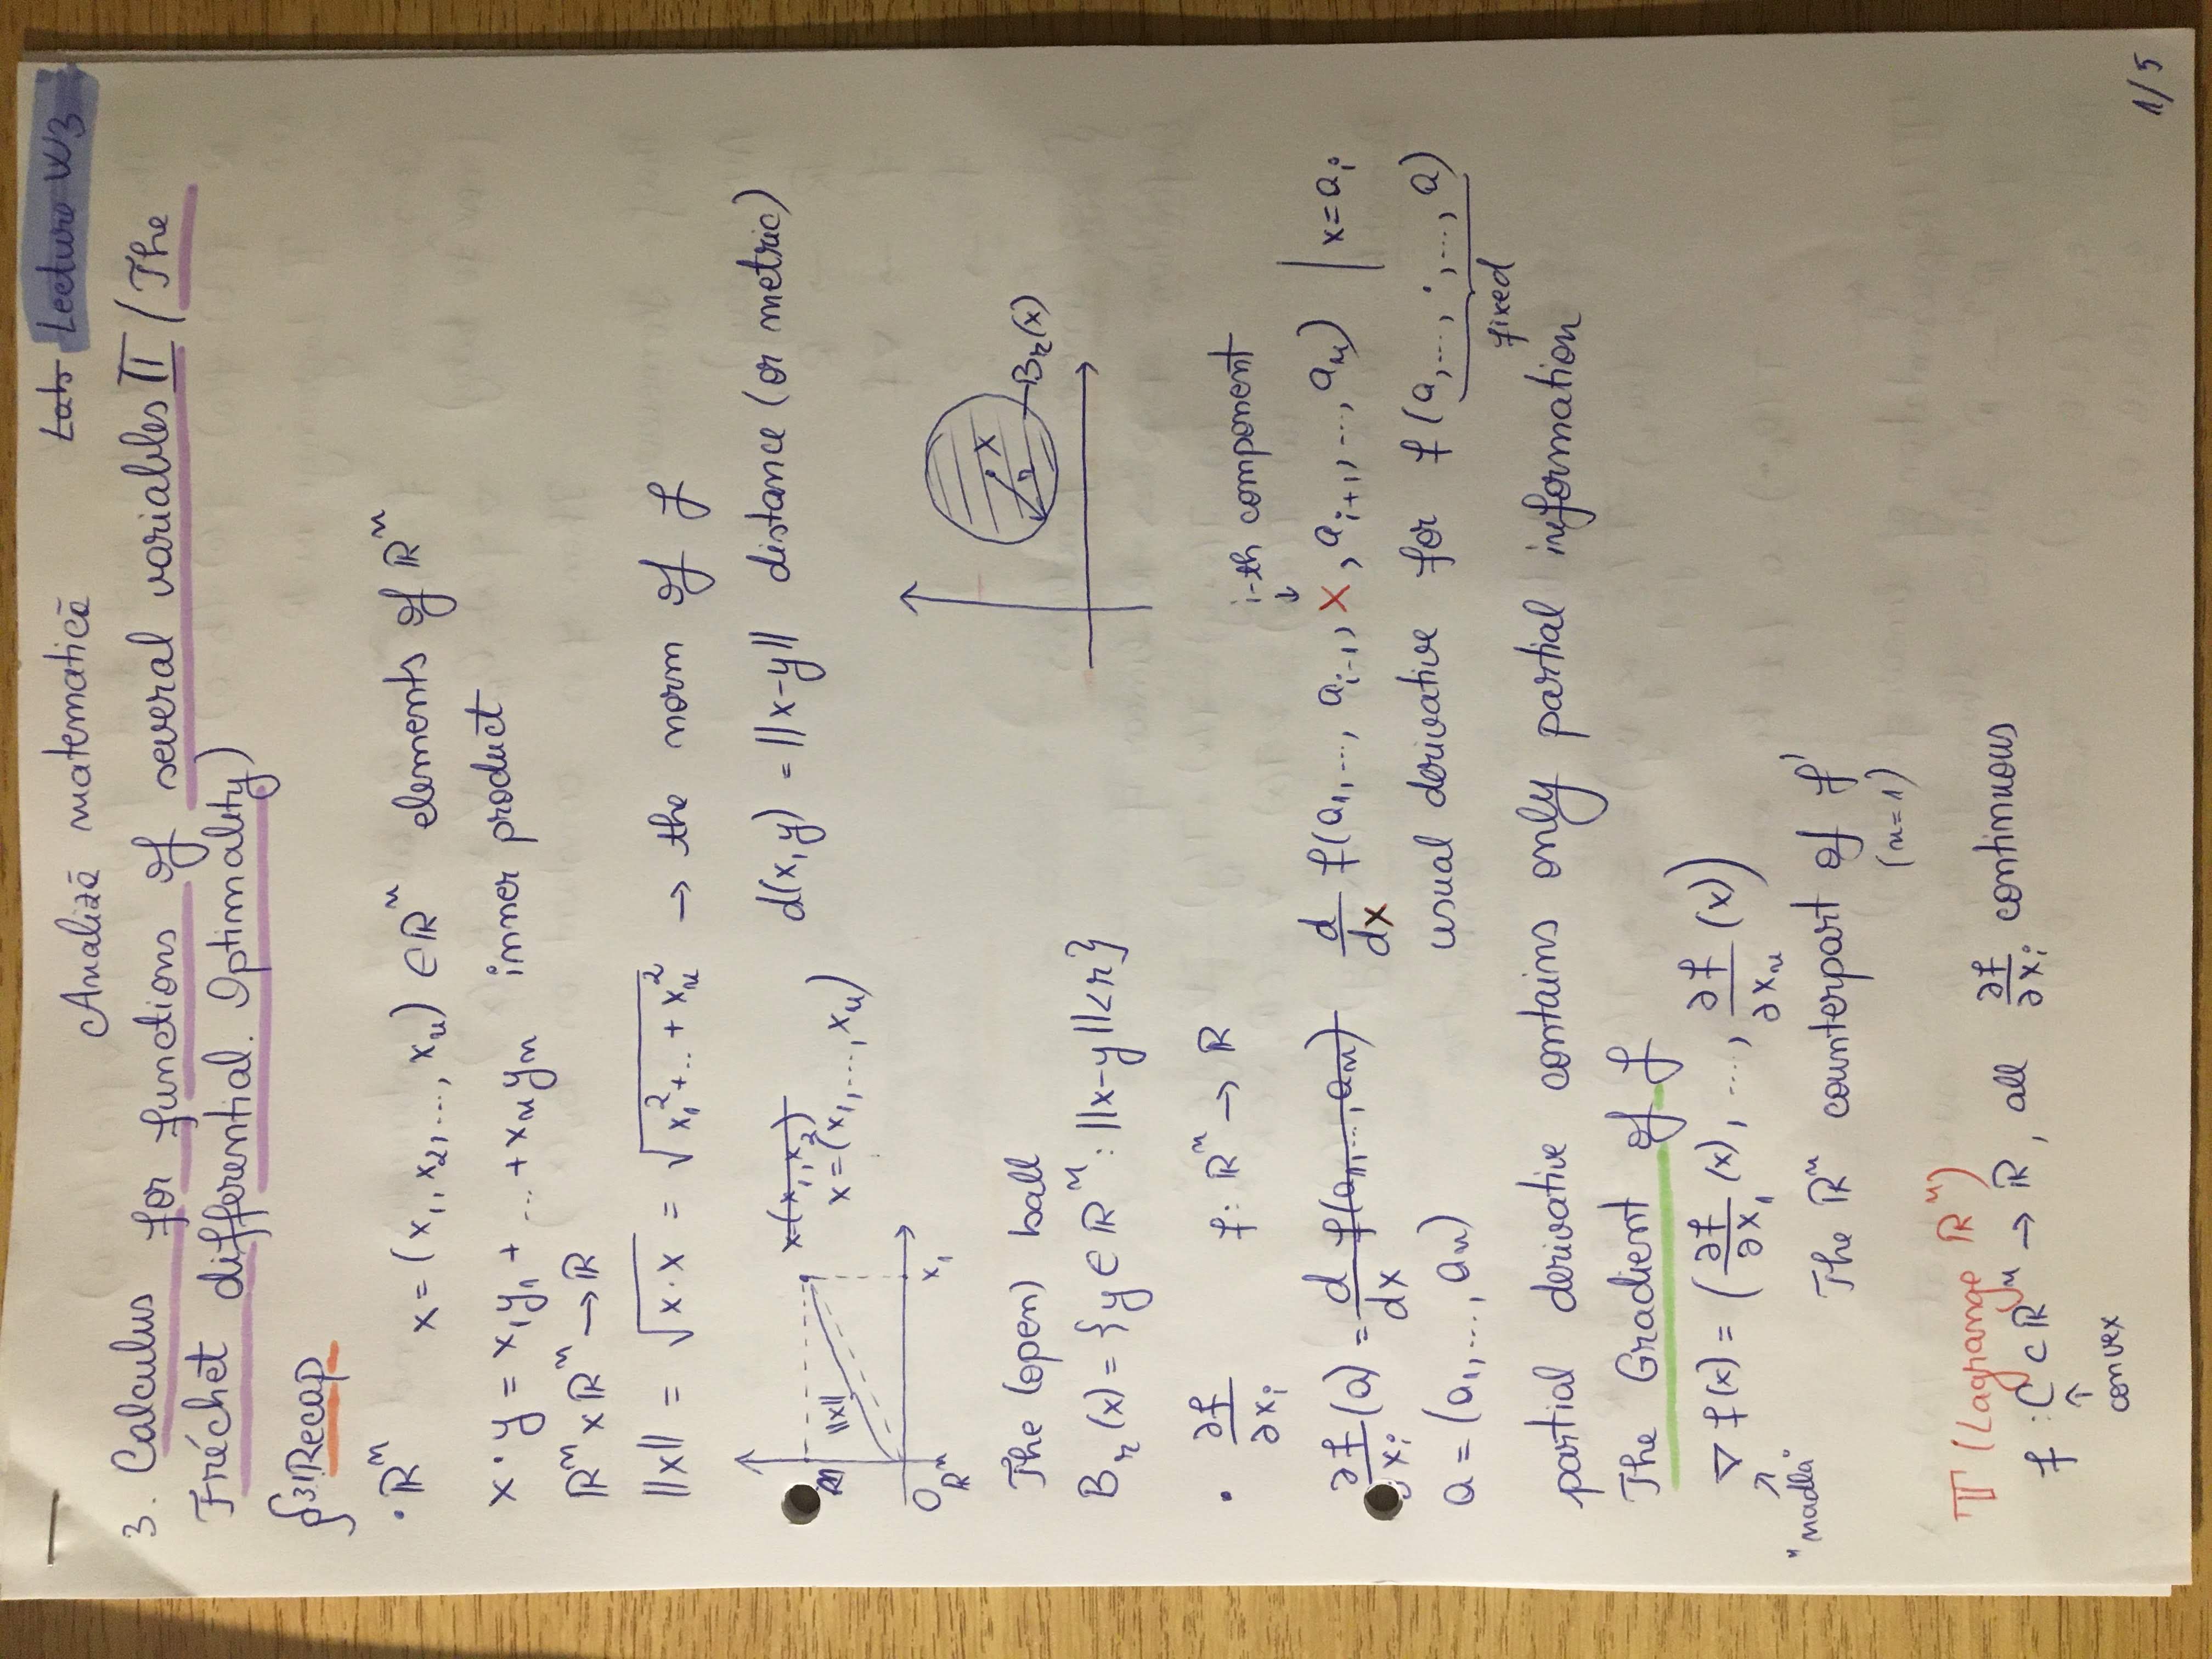 Analiză matematică
Lab Lecture W3
3. Calculus for functions of several variables II (The
Fréchet differential. Optimality)
§3.1 Recap
• ℝⁿ x = (x₁, x₂, ..., xₙ) ∈ ℝⁿ elements of ℝⁿ
x · y = x₁y₁ + ... + xₙyₙ inner product
ℝⁿ × ℝⁿ → ℝ
||x|| = √(x·x) = √(x₁² + .. + xₙ²) → the norm of f
x=(x₁, x₂)
x = (x₁, ..., xₙ)
||x||
0ℝⁿ
x₁
d(x, y) = ||x-y|| distance (or metric)
x
r
Bᵣ(x)
The (open) ball
Bᵣ(x) = {y ∈ ℝⁿ : ||x-y|| < r}
• ∂f/∂xᵢ f: ℝⁿ → ℝ
i-th component
↓
∂f/∂xᵢ (a) = d/dx f(a₁, ..., aₙ) d/dx f(a₁, ..., aᵢ₋₁, x, aᵢ₊₁, ..., aₙ) | x=aᵢ
a = (a₁, ..., aₙ) usual derivative for f(a, ..., ·, ..., a)
fixed
partial derivative contains only partial information
The Gradient of f
∇ f(x) = (∂f/∂x₁ (x), ...., ∂f/∂xₙ (x))
↗
"nadla"
The ℝⁿ counterpart of f'
(n=1)
T (Lagrange ℝⁿ)
f : C ⊂ ℝⁿ → ℝ, all ∂f/∂xᵢ continuous
↑
convex
1/5